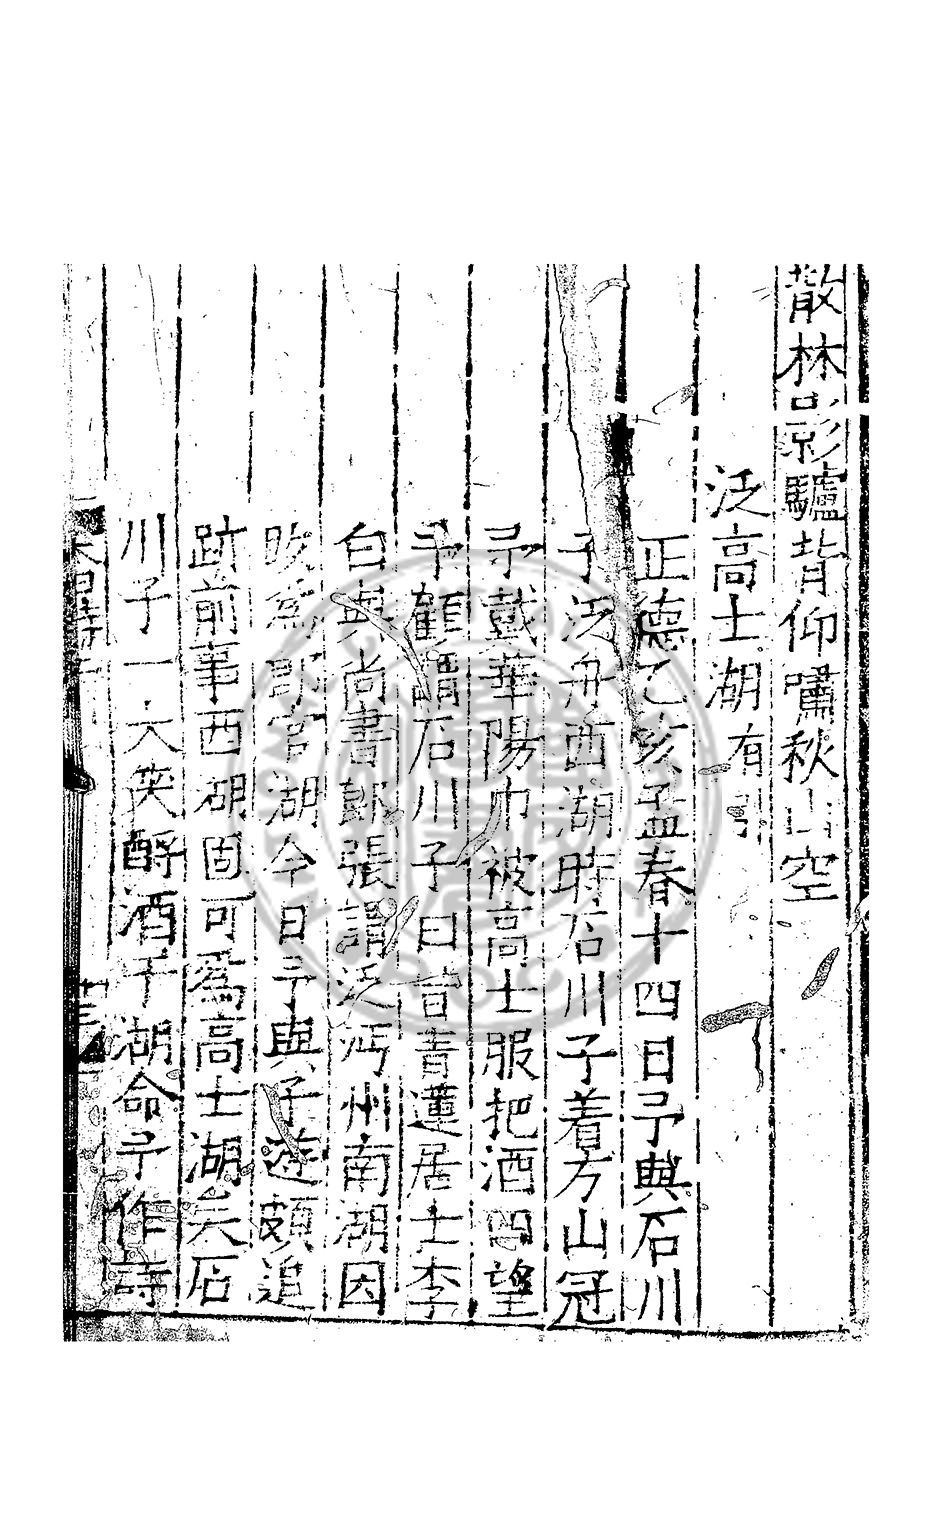 散林影驢背仰嘯秋山空
泛高士湖有引
正德乙亥孟春十四日予與石川
子泛舟西湖時石川子着方山冠
予戴華陽巾被高士服把酒四望
予顧謂石川子曰昔青蓮居士李
白與尚書郎張謂泛沔州南湖因
改為郎官湖今日予與子遊頗追
跡前事西湖固可為高士湖矣石
川子一大笑酹酒于湖命予作詩